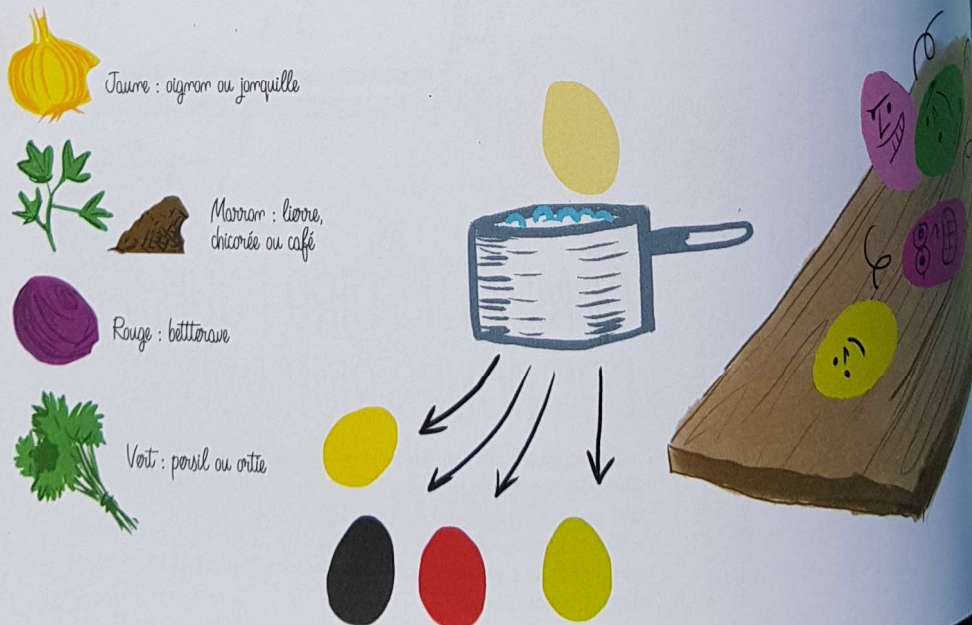 Jaune : oignon ou jonquille
Marron : lierre,
chicorée ou café
Rouge : bettterave
Vert : persil ou ortie